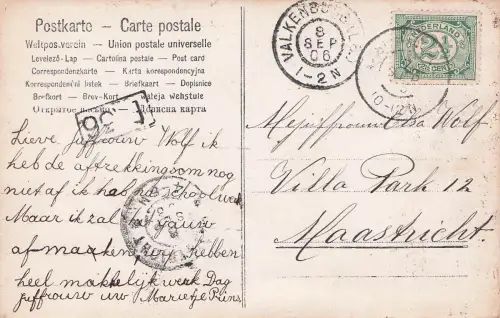 Postkarte — Carte postale
Weltpostverein — Union postale universelle
Levelező-Lap — Cartolina postale — Post card
Correspondenzkarte — Karta korrespondencyjna
Korespondenční lístek — Briefkaart — Dopisnice
Brefkort — Brev-Kort — Weleja wehstule
Открытое письмо — Дописна карта
VALKENBURG
8
SEP
06
1-2N
10-12N
NEDERLAND
2½
CENT
Lieve juffrouw Wolf ik
heb de aftrekkingsom nog
niet af ik hab
Maar ik zal ze gauw
af maaken wij hebben
heel makkelijk werk Dag
juffrouw uw Marietje Prins
Mejuffrouw Wolf
Villa Park 12
Maastricht.